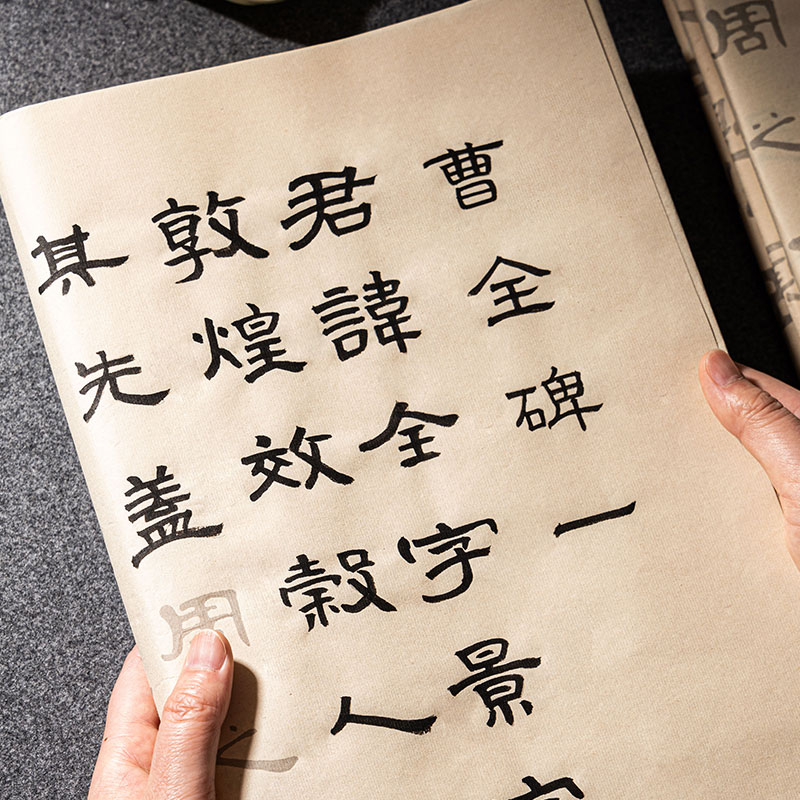 曹全碑一
君諱全字景
敦煌效穀人
其先蓋周之
周之